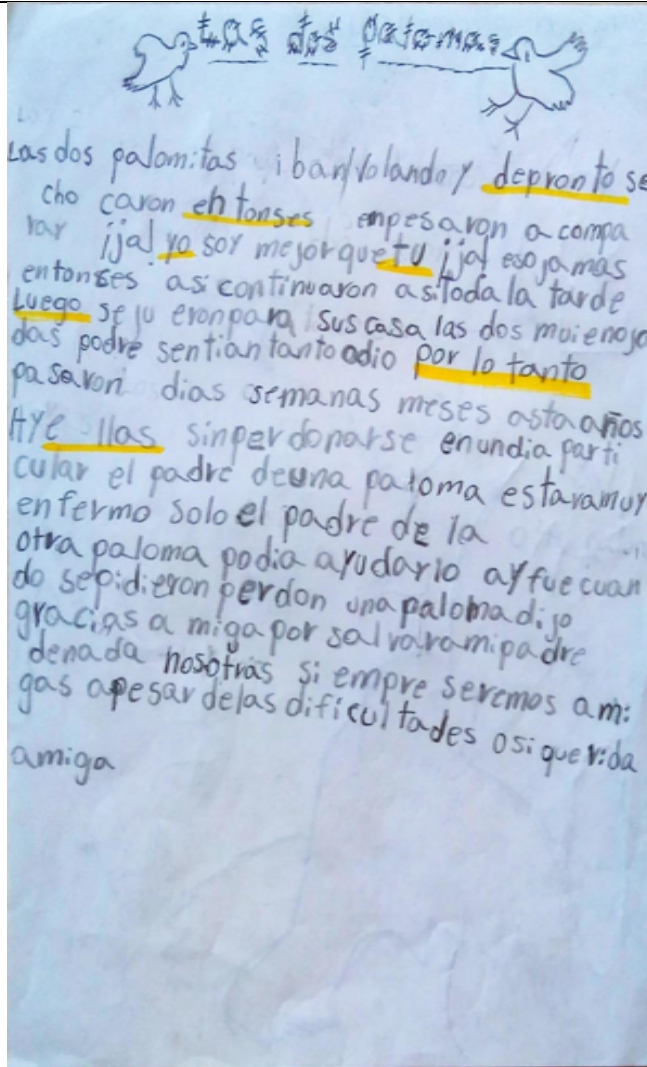 Las dos palomas
Las dos palomitas iban volando y depronto se
cho caron entonses empesaron a compa
rar ¡ja! yo soy mejor que tu ¡ja! eso jamas
entonses asi continuaron asi toda la tarde
Luego se ju eron para sus casa las dos mui enojo
das podre sentian tanto odio por lo tanto
pasaron dias semanas meses asta años
Aye llas sin perdonarse en un dia parti
cular el padre de una paloma estava muy
enfermo solo el padre de la
otra paloma podia ayudarlo ay fue cuan
do se pidieron perdon una paloma dijo
gracias a miga por salvar a mi padre
denada nosotras si empre seremos ami
gas apesar de las dificul tades o si querida
amiga